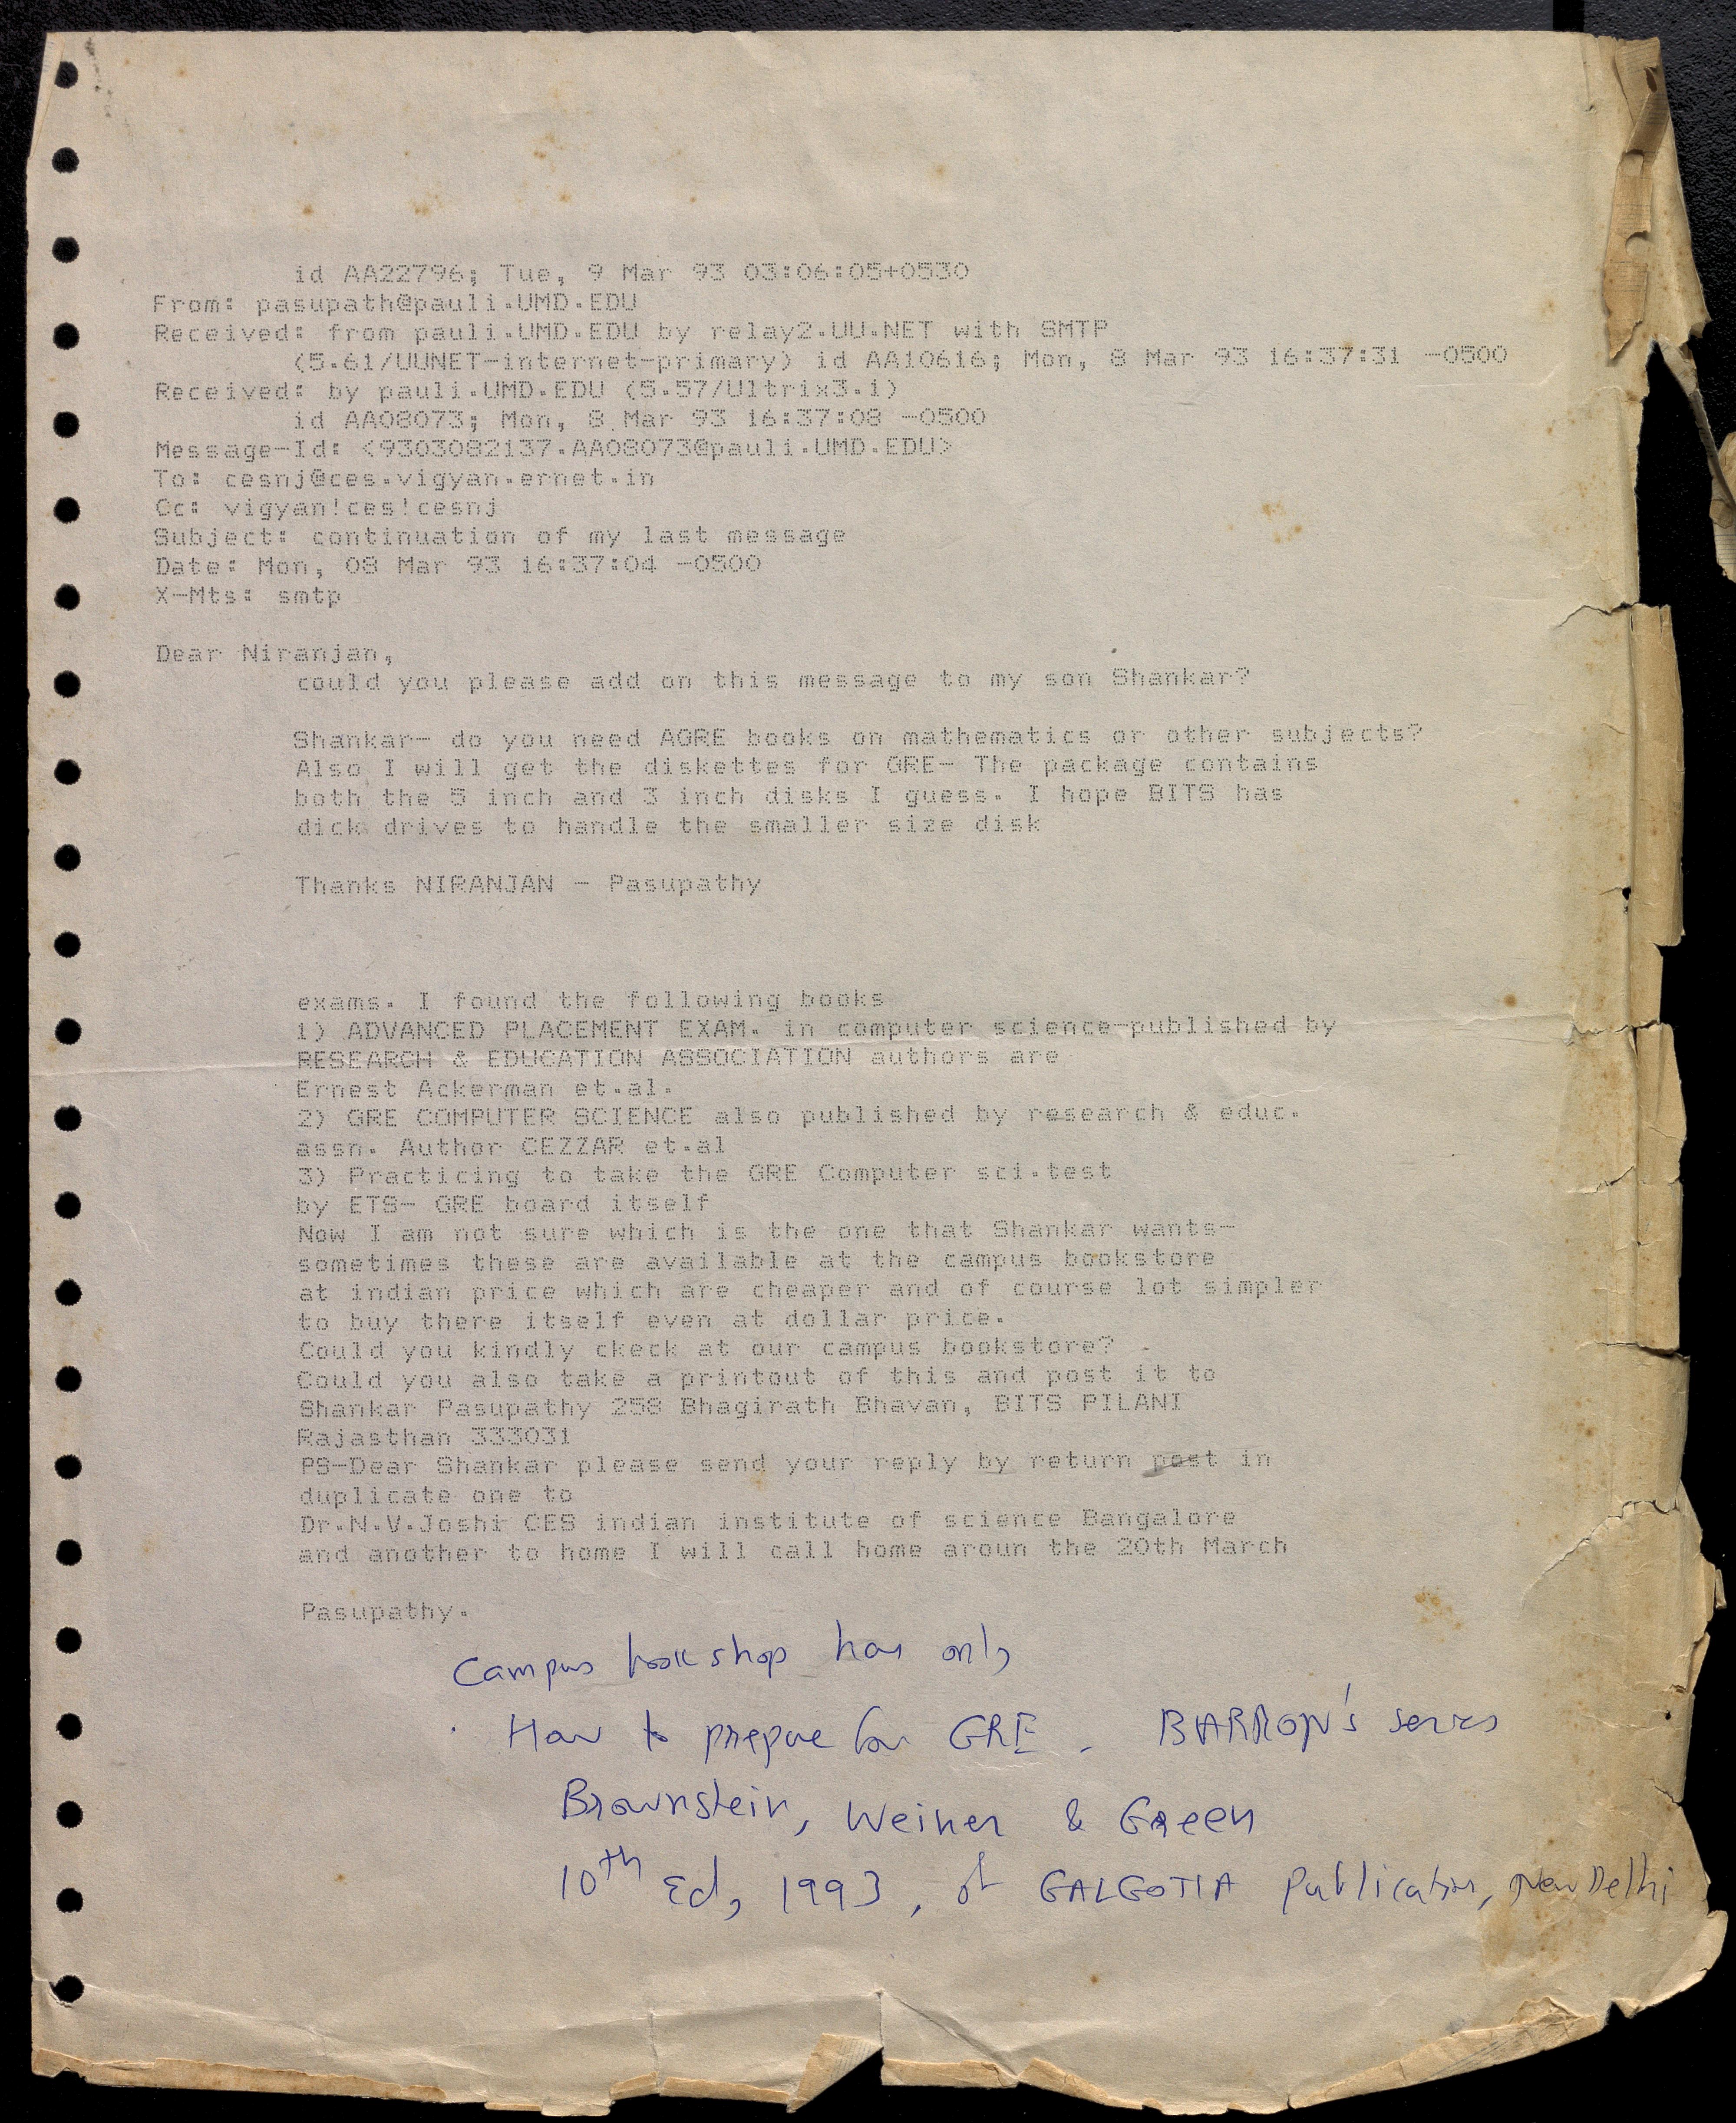 id AA22796; Tue, 9 Mar 93 03:06:05+0530
From: pasupath@pauli.UMD.EDU
Received: from pauli.UMD.EDU by relay2.UU.NET with SMTP
(5.61/UUNET-internet-primary) id AA10616; Mon, 8 Mar 93 16:37:31 -0500
Received: by pauli.UMD.EDU (5.57/Ultrix3.i)
id AA08073; Mon, 8 Mar 93 16:37:08 -0500
Message-Id: <9303082137.AA08073@pauli.UMD.EDU>
To: cesnj@ces.vigyan.ernet.in
Cc: vigyan!ces!cesnj
Subject: continuation of my last message
Date: Mon, 08 Mar 93 16:37:04 -0500
X-Mts: smtp
Dear Niranjan,
could you please add on this message to my son Shankar?
Shankar- do you need AGRE books on mathematics or other subjects?
Also I will get the diskettes for GRE- The package contains
both the 5 inch and 3 inch disks I guess. I hope BITS has
dick drives to handle the smaller size disk
Thanks NIRANJAN - Pasupathy
exams. I found the following books
1) ADVANCED PLACEMENT EXAM. in computer science-published by
RESEARCH & EDUCATION ASSOCIATION authors are
Ernest Ackerman et.al.
2) GRE COMPUTER SCIENCE also published by research & educ.
assn. Author CEZZAR et.al
3) Practicing to take the GRE Computer sci.test
by ETS- GRE board itself
Now I am not sure which is the one that Shankar wants-
sometimes these are available at the campus bookstore
at indian price which are cheaper and of course lot simpler
to buy there itself even at dollar price.
Could you kindly ckeck at our campus bookstore?
Could you also take a printout of this and post it to
Shankar Pasupathy 258 Bhagirath Bhavan, BITS PILANI
Rajasthan 333031
PS-Dear Shankar please send your reply by return post in
duplicate one to
Dr.N.V.Joshi CES indian institute of science Bangalore
and another to home I will call home aroun the 20th March
Pasupathy.
Campus bookshop has only
How to prepare for GRE - BARRON's series
Brownstein, Weiner & Green
10th Ed, 1993, of GALGOTIA Publication, New Delhi